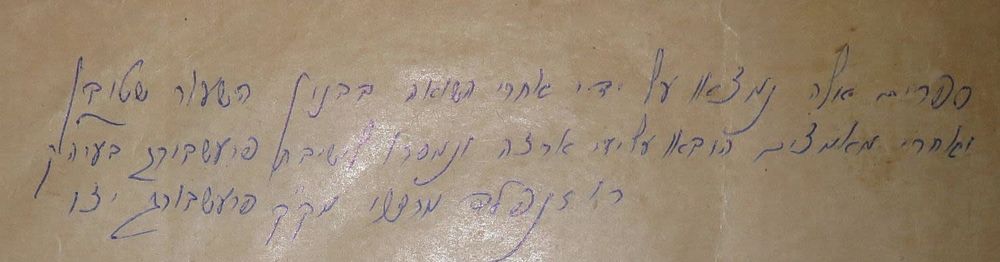 ספרים אלה נמצאו על ידי אחרי השואה בבנין השעור שטובן
ואחרי מאמצים הובאו על ידי ארצה ונמסרו לישיבת פרעשבורג בעיה"ק
מק"ק פרעשבורג יצו